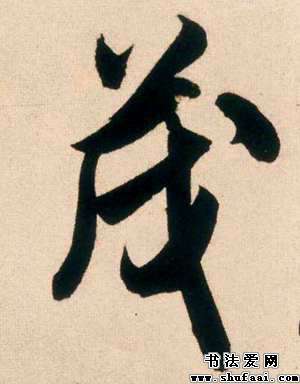 茂
书法爱网
www.shufaai.com